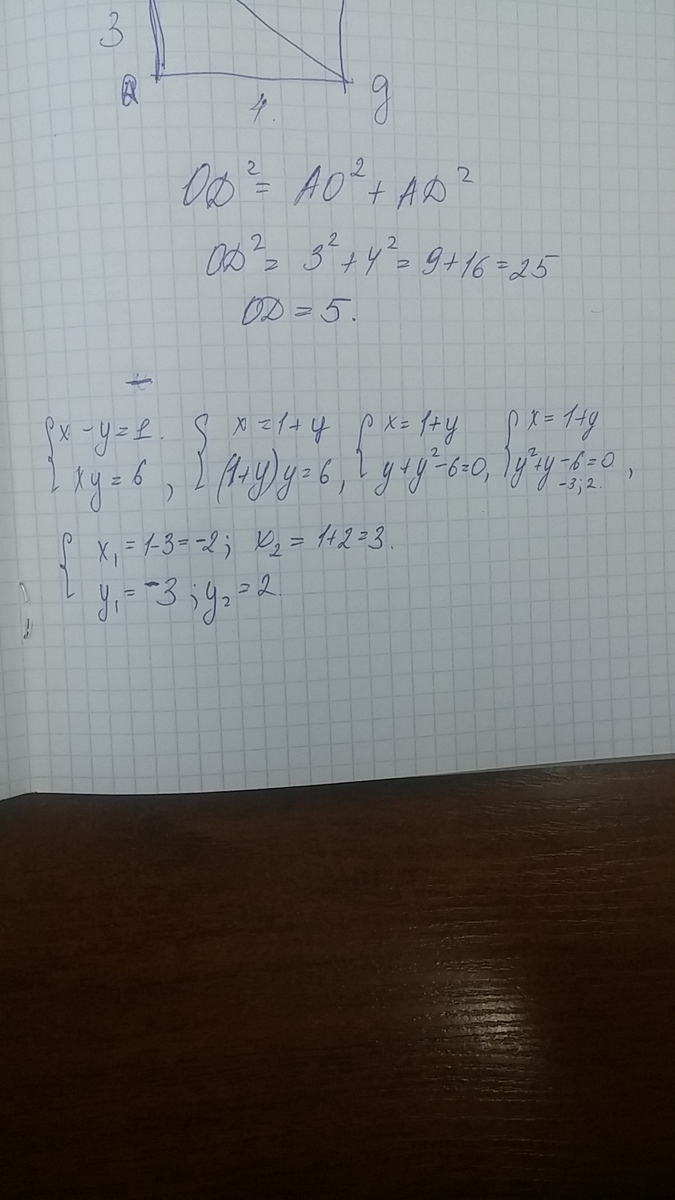 3
4.
g
OD² = AO² + AD²
OD² = 3² + 4² = 9 + 16 = 25
OD = 5.
{x - y = 1. {x = 1 + y {x = 1 + y {x = 1 + y
xy = 6, (1+y)y = 6, y + y² - 6 = 0, y² + y - 6 = 0,
-3; 2.
{x₁ = 1 - 3 = -2; x₂ = 1 + 2 = 3.
y₁ = -3; y₂ = 2.